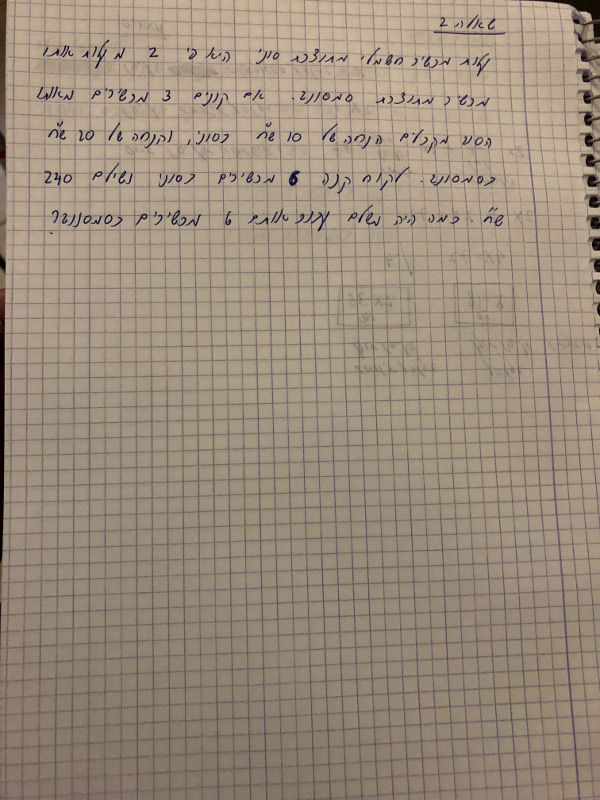 שאלה 2
עלות מכשיר חשמלי מתוצרת סוני, היא פי 2 מעלות אותו
מכשיר מתוצרת סמסונג. אם קונים 3 מכשירים מאותו
הסוג מקבלים הנחה של 10 ש"ח בסוני, והנחה של 20 ש"ח
בסמסונג. לקוח קנה 6 מכשירים בסוני ושילם 240
ש"ח. כמה היה משלם עבור אותם 6 מכשירים בסמסונג?